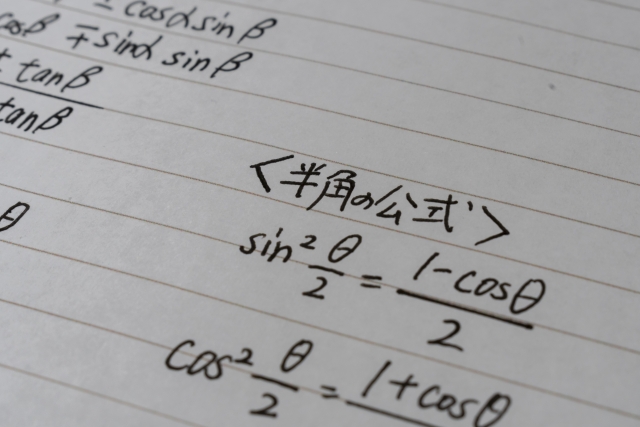 ± cosα sinβ
cosβ ∓ sinα sinβ
± tanβ
tanβ
θ
<半角の公式>
sin² θ/2 = 1-cosθ/2
cos² θ/2 = 1+cosθ